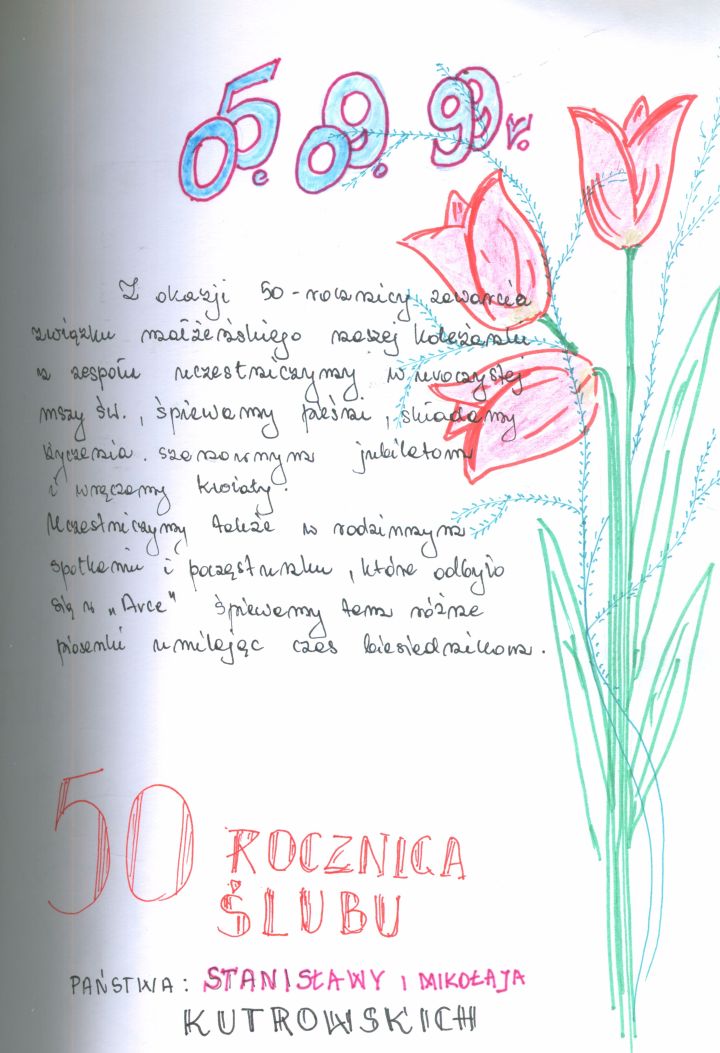 05.09.99r.
Z okazji 50-rocznicy zawarcia
związku małżeńskiego naszej koleżanki
z zespołu uczestniczymy w uroczystej
mszy św., śpiewamy pieśni, składamy
życzenia szanownym jubilatom
i wręczamy kwiaty.
Uczestniczymy także w rodzinnym
spotkaniu i poczęstunku, które odbyło
się w „Arce" śpiewamy tam różne
piosenki umilając czas biesiadnikom.
50 ROCZNICA
ŚLUBU
PAŃSTWA: STANISŁAWY I MIKOŁAJA
KUTROWSKICH